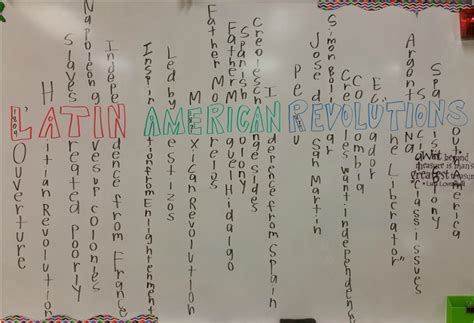 LATIN AMERICAN REVOLUTIONS
L'Ouverture
Haitian Revolution
Slaves treated poorly
Napoleon gives up colonies
Independence from France
Inspiration from Enlightenment
Led by Mestizos
Mexican Revolution
Father Morelos
Father Miguel Hidalgo
Spanish Colony
Creoles change sides
Independence from Spain
Peru
Jose de San Martin
Simon Bolivar
Creoles want independence
Colombia
Ecuador
"The Liberator"
Argentina
Social class issues
Spanish Colony
South America
wit beyond
measure is man's
greatest treasure